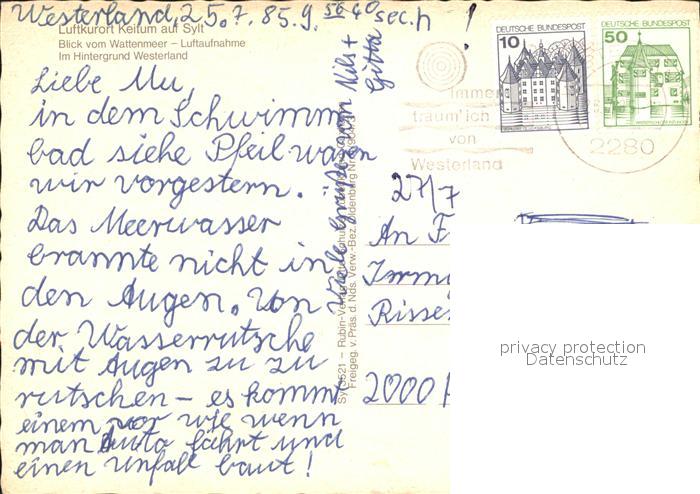 Westerland, 25.7.85.9.56 40 sec.h !
Luftkurort Keitum auf Sylt
Blick vom Wattenmeer – Luftaufnahme
Im Hintergrund Westerland
Liebe Mu,
in dem Schwimm
bad siehe Pfeil waren
wir vorgestern.
Das Meerwasser
brannte nicht in
den Augen. Von
der Wasserrutsche
mit Augen zu zu
rutschen – es kommt
einem vor wie wenn
man Auto fährt und
einen Unfall baut!
Viele Grüße von Nils +
Gitta
Freigeg. v. Präs. d. Nds. Verw.-Bez. Oldenburg
DEUTSCHE BUNDESPOST
10
DEUTSCHE BUNDESPOST
50
Immer
traum' ich
von
Westerland
2280
27/7
An F
Immi
Risse
2000
privacy protection
Datenschutz